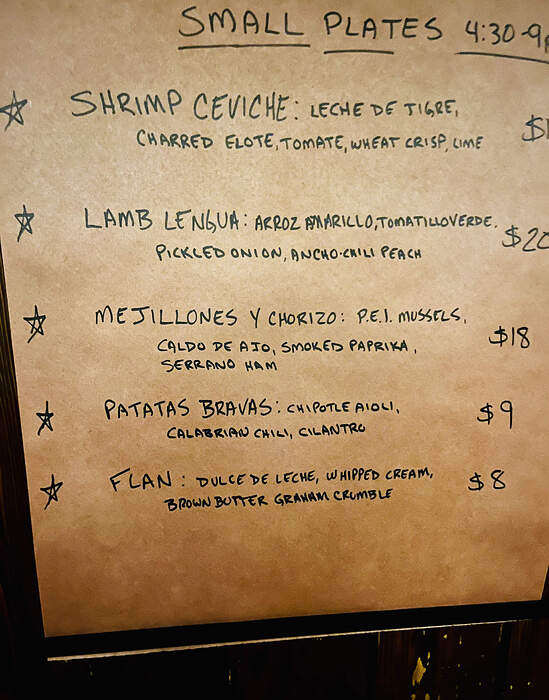 SMALL PLATES 4:30-9
SHRIMP CEVICHE: LECHE DE TIGRE,
CHARRED ELOTE, TOMATE, WHEAT CRISP, LIME
LAMB LENGUA: ARROZ AMARILLO, TOMATILLO VERDE, $20
PICKLED ONION, ANCHO-CHILI PEACH
MEJILLONES Y CHORIZO: P.E.I. MUSSELS, $18
CALDO DE AJO, SMOKED PAPRIKA,
SERRANO HAM
PATATAS BRAVAS: CHIPOTLE AIOLI, $9
CALABRIAN CHILI, CILANTRO
FLAN: DULCE DE LECHE, WHIPPED CREAM, $8
BROWN BUTTER GRAHAM CRUMBLE